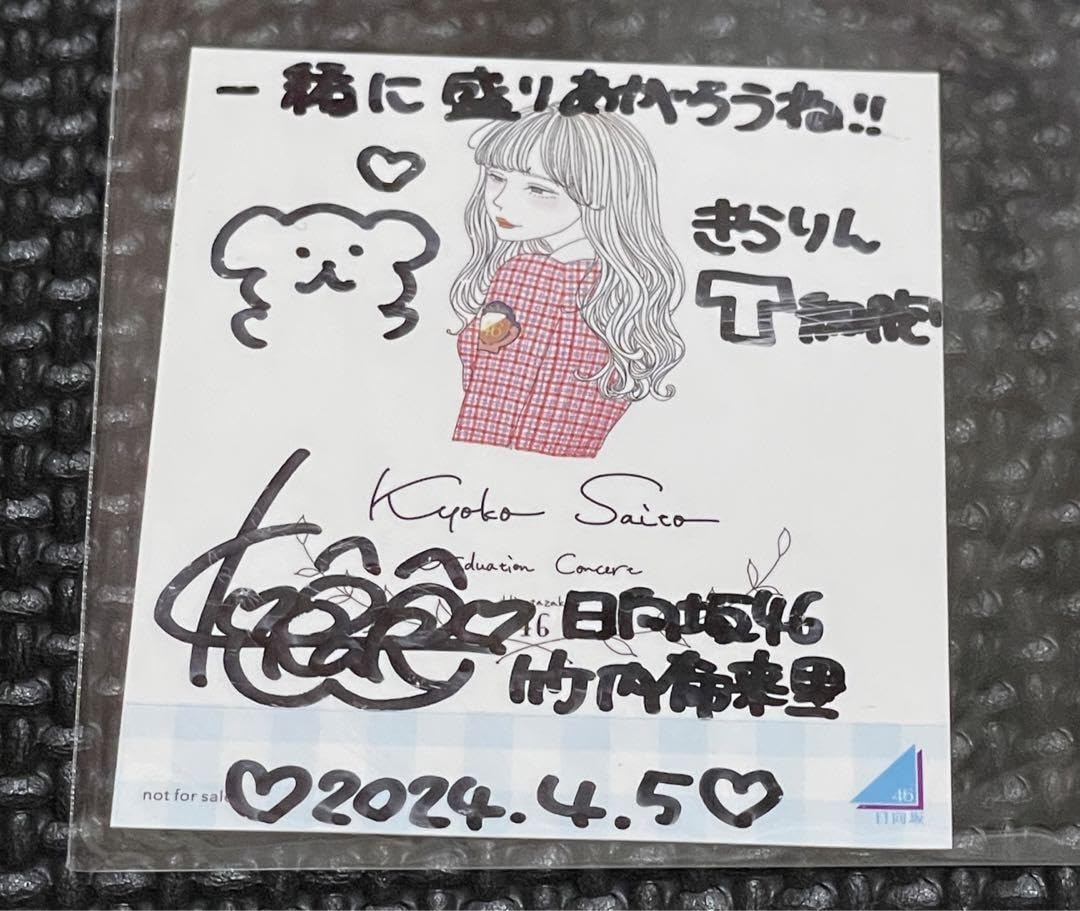 一緒に盛りあがろうね!!
きらりん
T
Kyoko Saito
Graduation Concert
46 日向坂46
竹内希来里
not for sale
♡2024.4.5♡
46
日向坂